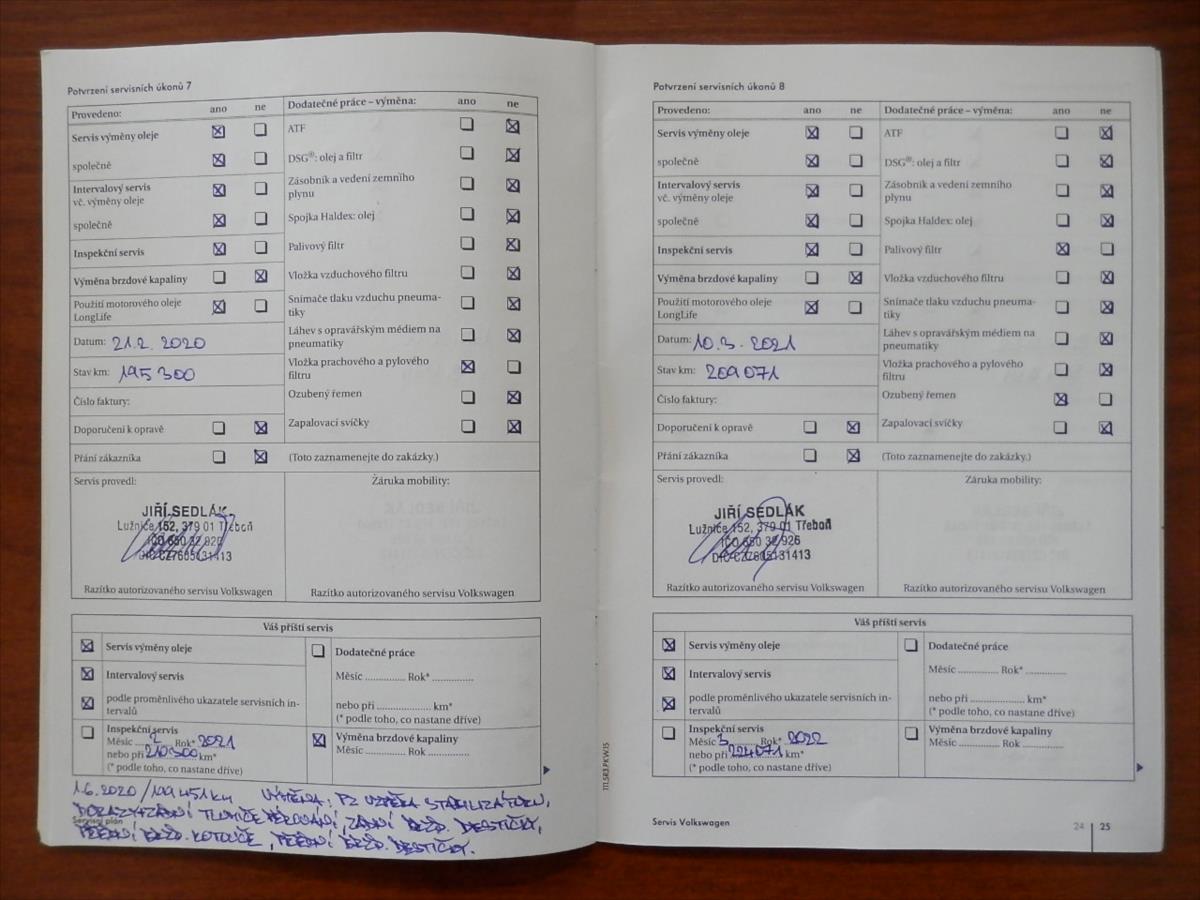 Potvrzení servisních úkonů 7
Provedeno: ano ne
Servis výměny oleje
společně
Intervalový servis
vč. výměny oleje
společně
Inspekční servis
Výměna brzdové kapaliny
Použití motorového oleje
LongLife
Datum: 21.2. 2020
Stav km: 195 300
Číslo faktury:
Doporučení k opravě
Přání zákazníka
Dodatečné práce – výměna: ano ne
ATF
DSG®: olej a filtr
Zásobník a vedení zemního
plynu
Spojka Haldex: olej
Palivový filtr
Vložka vzduchového filtru
Snímače tlaku vzduchu pneuma-
tiky
Láhev s opravářským médiem na
pneumatiky
Vložka prachového a pylového
filtru
Ozubený řemen
Zapalovací svíčky
(Toto zaznamenejte do zakázky.)
Servis provedl:
JIŘÍ SEDLÁK
Lužnice 152, 379 01 Třeboň
IČO 650 32 926
DIČ CZ7605131413
Razítko autorizovaného servisu Volkswagen
Záruka mobility:
Razítko autorizovaného servisu Volkswagen
Váš příští servis
Servis výměny oleje
Intervalový servis
podle proměnlivého ukazatele servisních in-
tervalů
Inspekční servis
Měsíc 2 Rok* 2021
nebo při 210 300 km*
(* podle toho, co nastane dříve)
Dodatečné práce
Měsíc .............. Rok* ..............
nebo při .................. km*
(* podle toho, co nastane dříve)
Výměna brzdové kapaliny
Měsíc .............. Rok ..............
1.6.2020 / 199451 km VÝMĚNA: PZ VZPĚRA STABILIZÁTORU,
DORAZY+ZADNÍ TLUMIČE PÉROVÁNÍ, ZADNÍ BRZD. DESTIČKY,
Servisní plán
PŘEDNÍ BRZD. KOTOUČE, PŘEDNÍ BRZD. DESTIČKY.
Potvrzení servisních úkonů 8
Provedeno: ano ne
Servis výměny oleje
společně
Intervalový servis
vč. výměny oleje
společně
Inspekční servis
Výměna brzdové kapaliny
Použití motorového oleje
LongLife
Datum: 10.3. 2021
Stav km: 209 071
Číslo faktury:
Doporučení k opravě
Přání zákazníka
Dodatečné práce – výměna: ano ne
ATF
DSG®: olej a filtr
Zásobník a vedení zemního
plynu
Spojka Haldex: olej
Palivový filtr
Vložka vzduchového filtru
Snímače tlaku vzduchu pneuma-
tiky
Láhev s opravářským médiem na
pneumatiky
Vložka prachového a pylového
filtru
Ozubený řemen
Zapalovací svíčky
(Toto zaznamenejte do zakázky.)
Servis provedl:
JIŘÍ SEDLÁK
Lužnice 152, 379 01 Třeboň
IČO 650 32 926
DIČ CZ7605131413
Razítko autorizovaného servisu Volkswagen
Záruka mobility:
Razítko autorizovaného servisu Volkswagen
Váš příští servis
Servis výměny oleje
Intervalový servis
podle proměnlivého ukazatele servisních in-
tervalů
Inspekční servis
Měsíc 3 Rok* 2022
nebo při 224071 km*
(* podle toho, co nastane dříve)
Dodatečné práce
Měsíc .............. Rok* ..............
nebo při .................. km*
(* podle toho, co nastane dříve)
Výměna brzdové kapaliny
Měsíc .............. Rok ..............
111.5R3.PKW.15
Servis Volkswagen
24 25